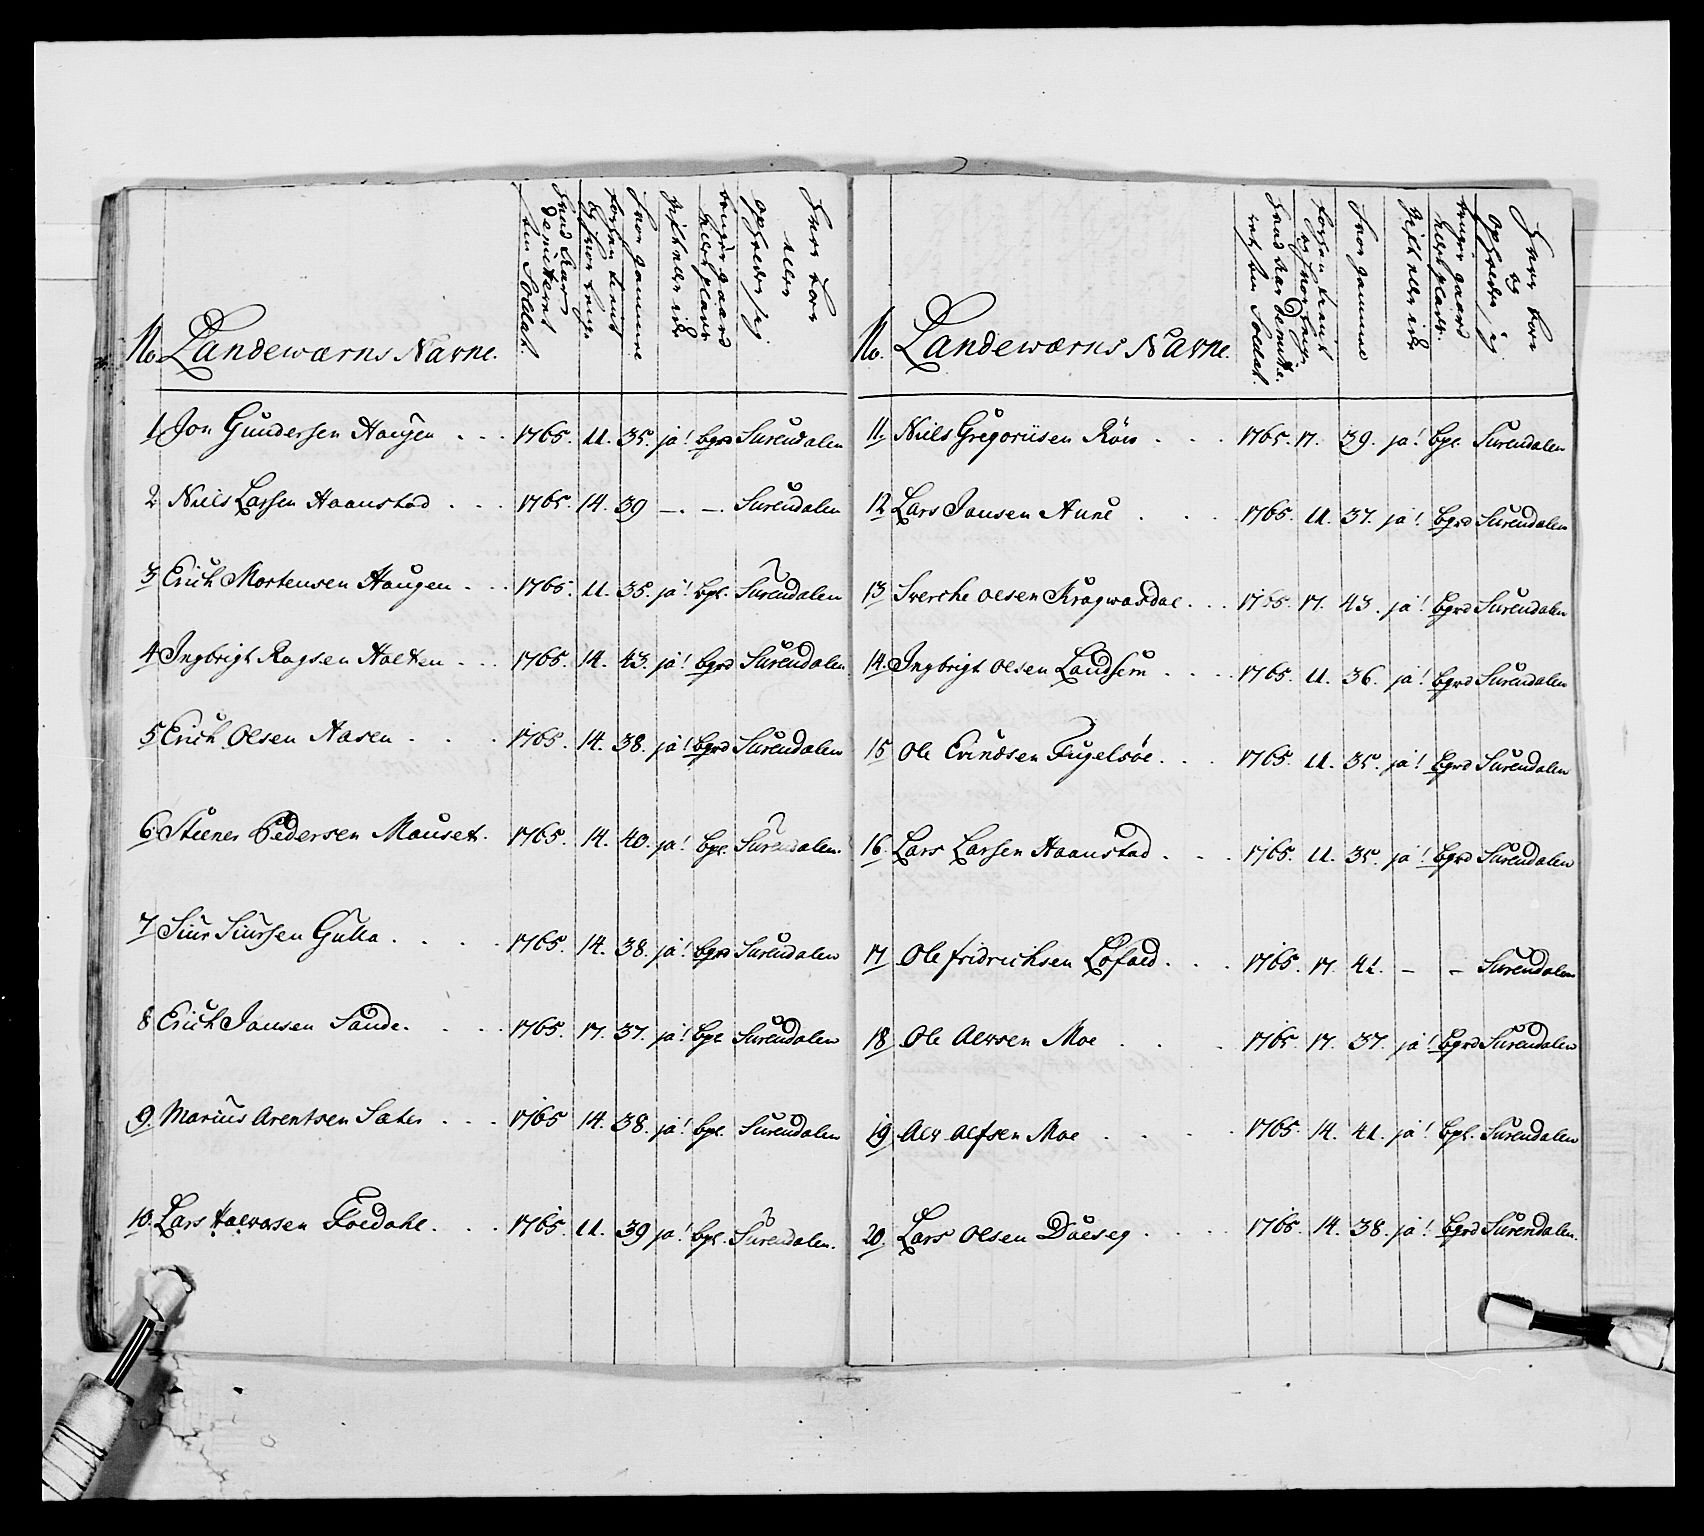 No. Landewærns Navne.
hvad Aar demitteret som Soldat.
og hvor længe forhen tient
hvor gammel
gift eller ei
bruger gaard eller plads
hvor boer eller opholder sig
1 Jon Gundersen Haugen . . . 1765. 11. 35. ja! bgrd Surendalen
2 Niels Larsen Haanstad . . . 1765. 14. 39 —. —. Surendalen
3 Erich Mortensen Haugen . . . 1765. 11. 35. ja! bpl. Surendalen
4 Ingbrigt Ragsen Holten . . . 1765. 14. 43. ja! bgrd Surendalen
5 Erich Olsen Aasen . . . 1765. 14. 38. ja! bgrd Surendalen
6 Steener Pedersen Mauset. 1765. 14. 40. ja! bpl. Surendalen.
7 Siur Siursen Gulla . . . . 1765. 14. 38. ja! bgrd Surendalen
8 Erich Jonsen Sande. . . . 1765. 17. 37. ja! bpl Surendalen
9. Marius Arentsen Sæter . . . 1765 14. 38. ja! bpl. Surendalen
10. Lars Halvorsen Foedahl. . . 1765. 11. 39 ja! bpl. Surendalen.
No. Landewærns Navne.
hvad Aar demitte. ret som Soldat.
og hvor længe forhen tient
hvor gammel
gift eller ei
bruger gaard eller plads.
hvor boer og opholder sig
11. Niels Gregoriisen Röv . . . 1765. 17. 39. ja! bpl. Surendalen
12 Lars Jonsen Aune . . . 1765. 11. 37. ja! bgrd Surendalen
13 Sverche Olsen Kragwasdal . . . 1765. 17. 43. ja! bgrd Surendalen
14. Ingbrigt Olsen Landsem . . . 1765. 11. 36. ja! bgrd Surendalen
15 Ole Evindsen Fugelsöe . . . 1765. 11. 35. ja! bgrd Surendalen
16. Lars Larsen Haanstad . . . 1765. 11. 35. ja! bgrd Surendalen
17 Ole fridrichsen Lofald . . . 1765. 17. 41. – – Surendalen
18 Ole Alvsen Moe . . . 1765. 17. 37. ja! bgrd Surendalen
19 Alv Alfsen Moe . . . . 1765. 14. 41. ja! bpl. Surendalen
20. Lars Olsen Dalseg . . . . 1765. 14. 38. ja! bgrd Surendalen.